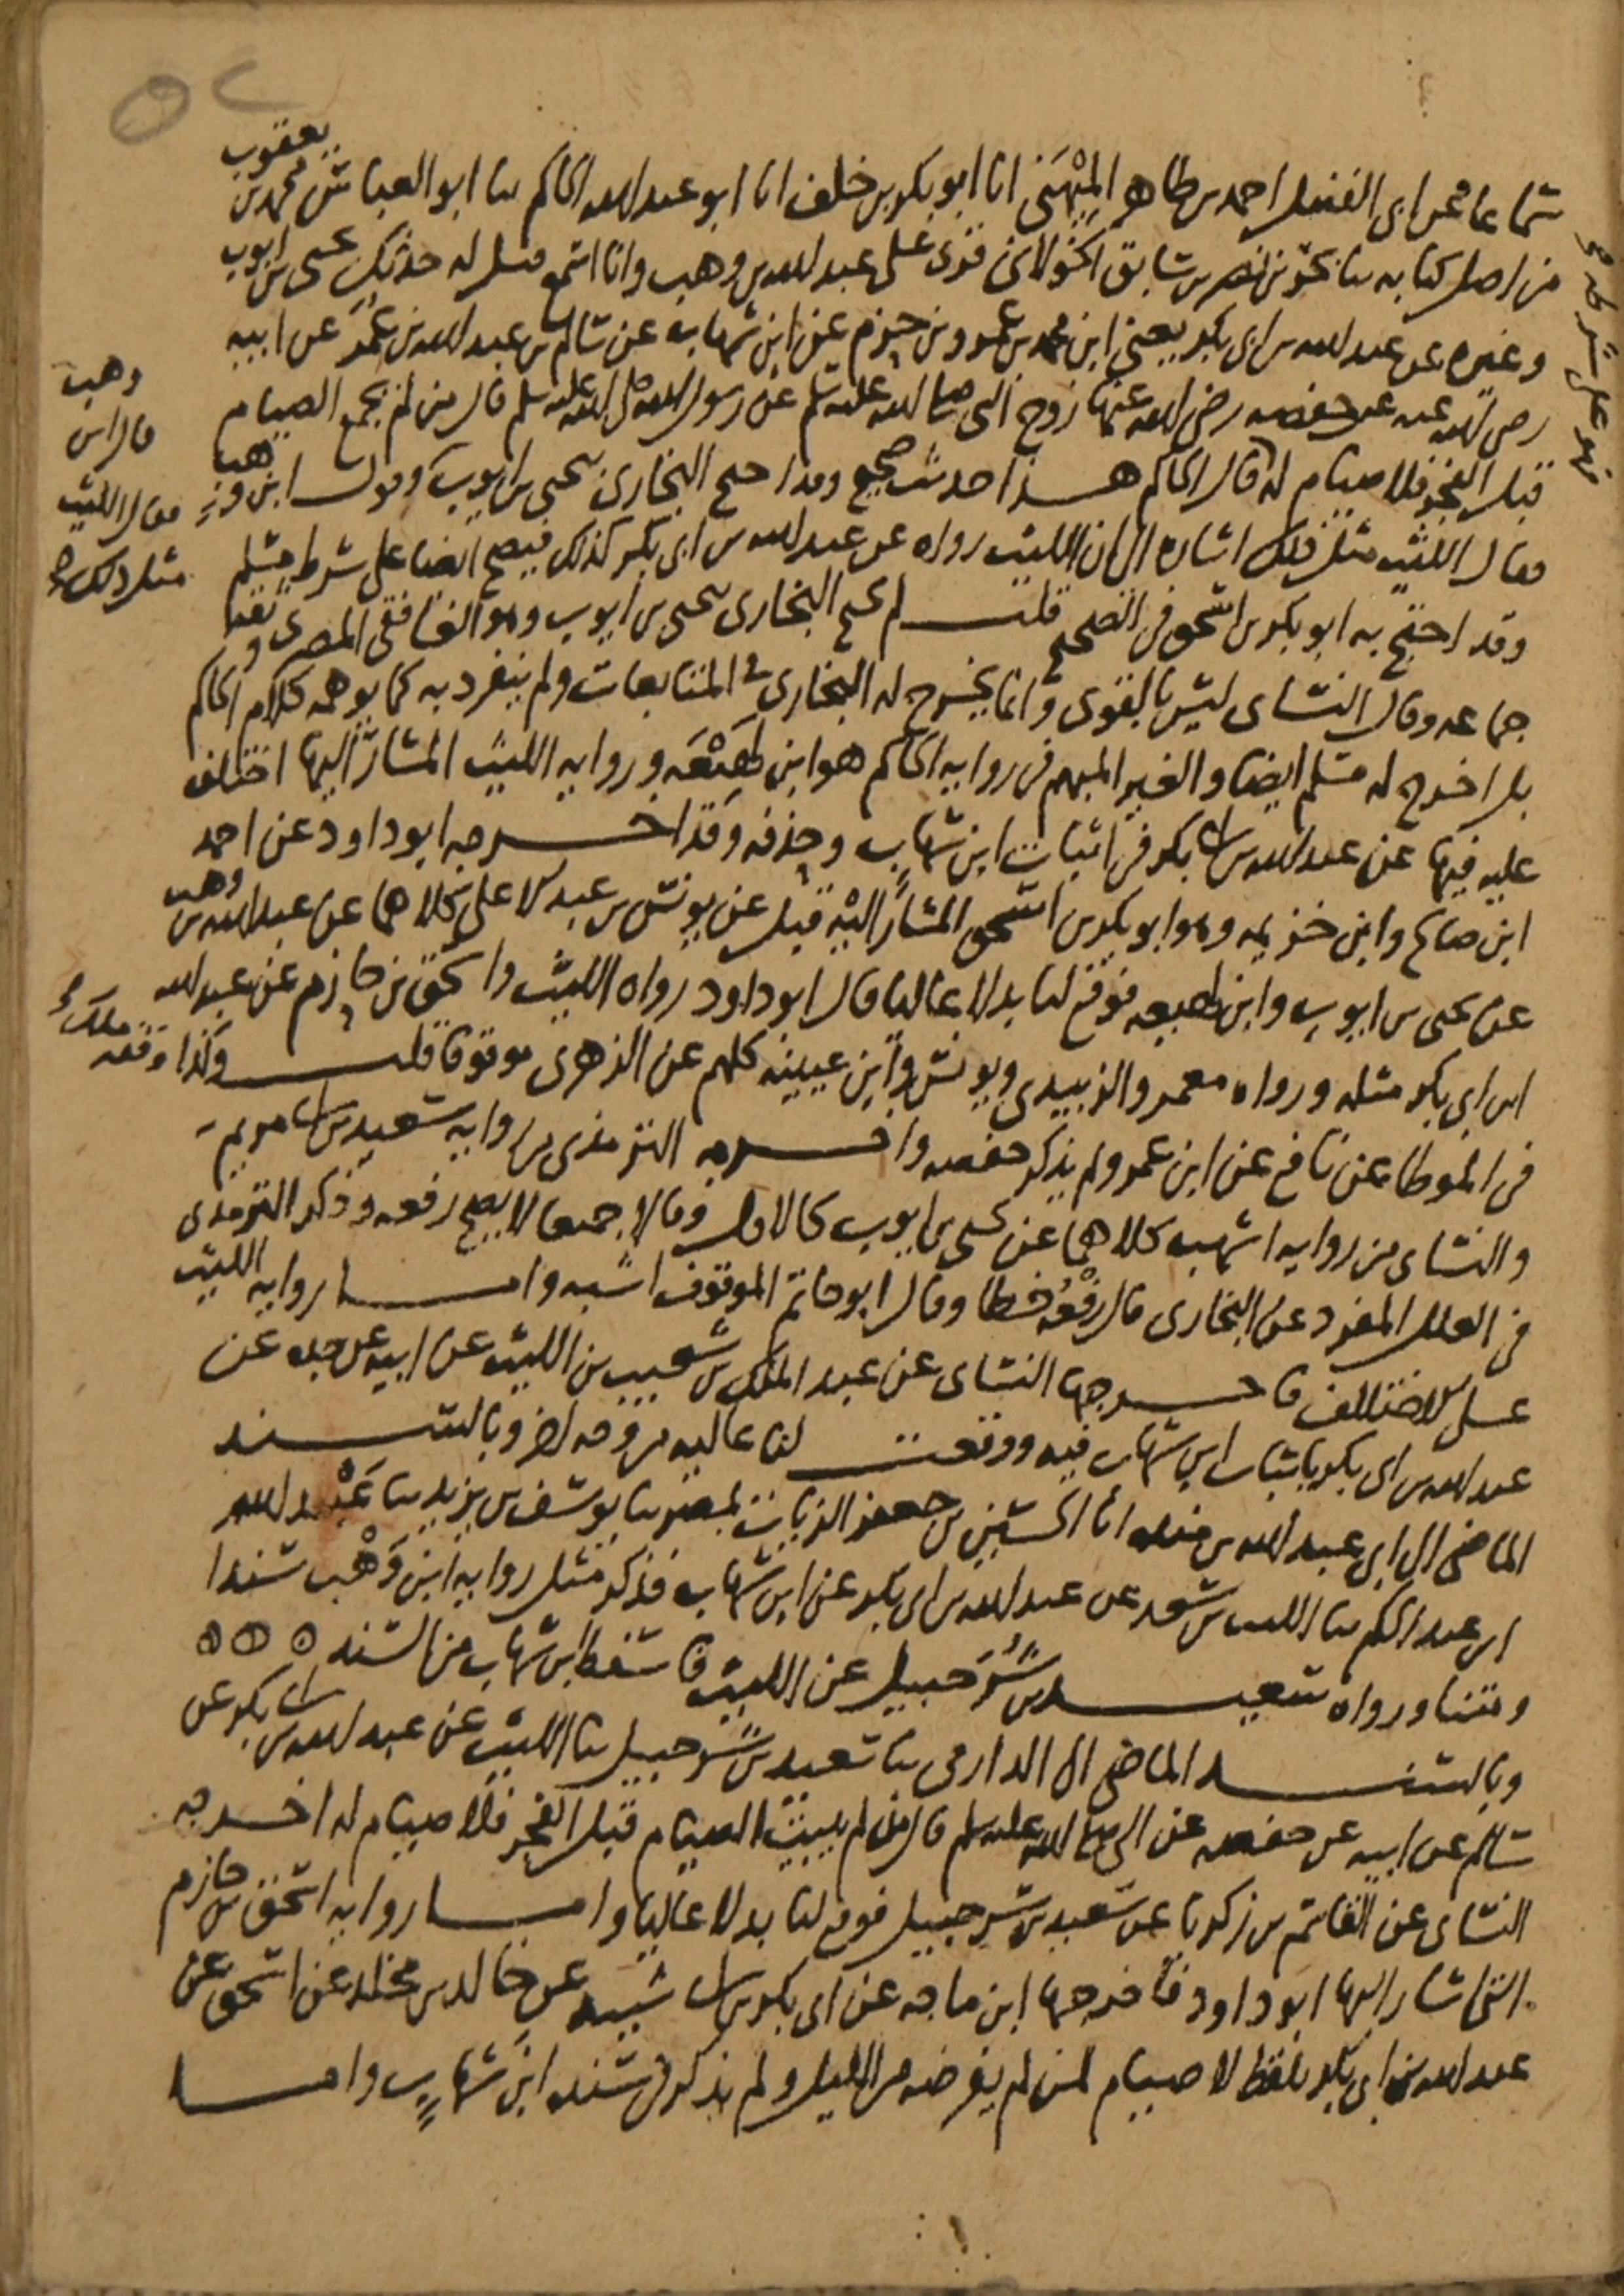 ٥٢
سماعا عن ابى الفضل احمد بن طاهر المِيْهَنى انا ابو بكر بن خلف انا ابو عبد الله الحاكم ثنا ابو العباس محمد بن يعقوب
من اصل كتابه ثنا بحر بن نصر بن سابق الخولانى قرئ على عبد الله بن وهب وانا اسمع قيل له حدثك يحيى بن ايوب
وغيره عن عبد الله بن ابى بكر يعنى ابن محمد بن عمرو بن حزم عن ابن شهاب عن سالم بن عبد الله بن عمر عن ابيه
رضى الله عنه عن حفصه رضى الله عنها زوج النبى صلى الله عليه وسلم عن رسول الله صلى الله عليه وسلم قال من لم يجمع الصيام
قبل الفجر فلا صيام له قال الحاكم هذا حديث صحيح وقد احتج البخارى بيحيى بن ايوب وقول ابن وهب
فقال الليث مثل ذلك اشاره الى ان الليث رواه عن عبد الله بن ابى بكر كذلك فيصح ايضا على شرط مسلم
وقد احتج به ابو بكر بن اسحق فى الصحيح قلت لم يحتج البخارى بيحيى بن ايوب وهو الغافقى المصرى وثقه
جماعه وقال النساى ليس بالقوى وانما يخرج له البخارى فى المتابعات ولم ينفرد به كما يوهمه كلام الحاكم
بل اخرج له مسلم ايضا والغير المبهم فى روايه الحاكم هو ابن لَهِيْعَه وروايه الليث المشار اليها اختلف
عليه فيها عن عبد الله بن ابى بكر فى اثبات ابن شهاب وحذفه وقد اخرجه ابو داود عن احمد
ابن صالح وابن خزيمه وهو ابو بكر بن اسحق المشار اليه قبل عن يونس بن عبد الاعلى كلاهما عن عبد الله بن وهب
عن يحيى بن ايوب وابن لهيعه فوقع لنا بدلا عاليا قال ابو داود رواه الليث واسحق بن حازم عن عبد الله
ابن ابى بكر مثله ورواه معمر والزبيدى ويونس وابن عيينه كلهم عن الزهرى موقوفا قلت وكذا وقفه ملك
فى الموطا عن نافع عن ابن عمر ولم يذكر حفصه واخرجه الترمذى من روايه سعيد بن ابى مريم
والنساى من روايه اشهب كلاهما عن يحيى بن ايوب كالاول وقالا جميعا لا يصح رفعه وذكر الترمذى
فى العلل المفرد عن البخارى قال رَفْعُه خطا وقال ابو حاتم الموقوف اشبه واما روايه الليث
على الاختلاف فاخرجها النساى عن عبد الملك بن شعيب بن الليث عن ابيه عن جده عن
عبد الله بن ابى بكر باثبات ابن شهاب فيه ووقعت لنا عاليه من وجه اخر وبالسند
الماضى الى ابى عبد الله بن منده انا الحسين بن جعفر الزيات بمصر ثنا يوسف بن يزيد ثنا عَبْد الله
ابن عبد الحكم ثنا الليث بن سعد عن عبد الله بن ابى بكر عن ابن شهاب فذكر مثل روايه ابن وَهْب سندا
ومتنا ورواه سعيد بن شُرَحبيل عن الليث فاسقط ابن شهاب من السند
وبالسند الماضى الى الدارمى ثنا سعيد بن شرحبيل ثنا الليث عن عبد الله بن ابى بكر عن
سالم عن ابيه عن حفصه عن النبى صلى الله عليه وسلم قال من لم يبيت الصيام قبل الفجر فلا صيام له اخرجه
النساى عن القاسم بن زكريا عن سعيد بن شرحبيل فوقع لنا بدلا عاليا واما روايه اسحق بن حازم
التى اشار اليها ابو داود فاخرجها ابن ماجه عن ابى بكر بن ابى شيبه عن خالد بن مخلد عن اسحق عن
عبد الله بن ابى بكر بلفظ لا صيام لمن لم يفرضه من الليل ولم يذكر فى سنده ابن شهاب واما
وهب
قال ابن
فقال الليث
مثل ذلك صح
فهو على شرطه صح